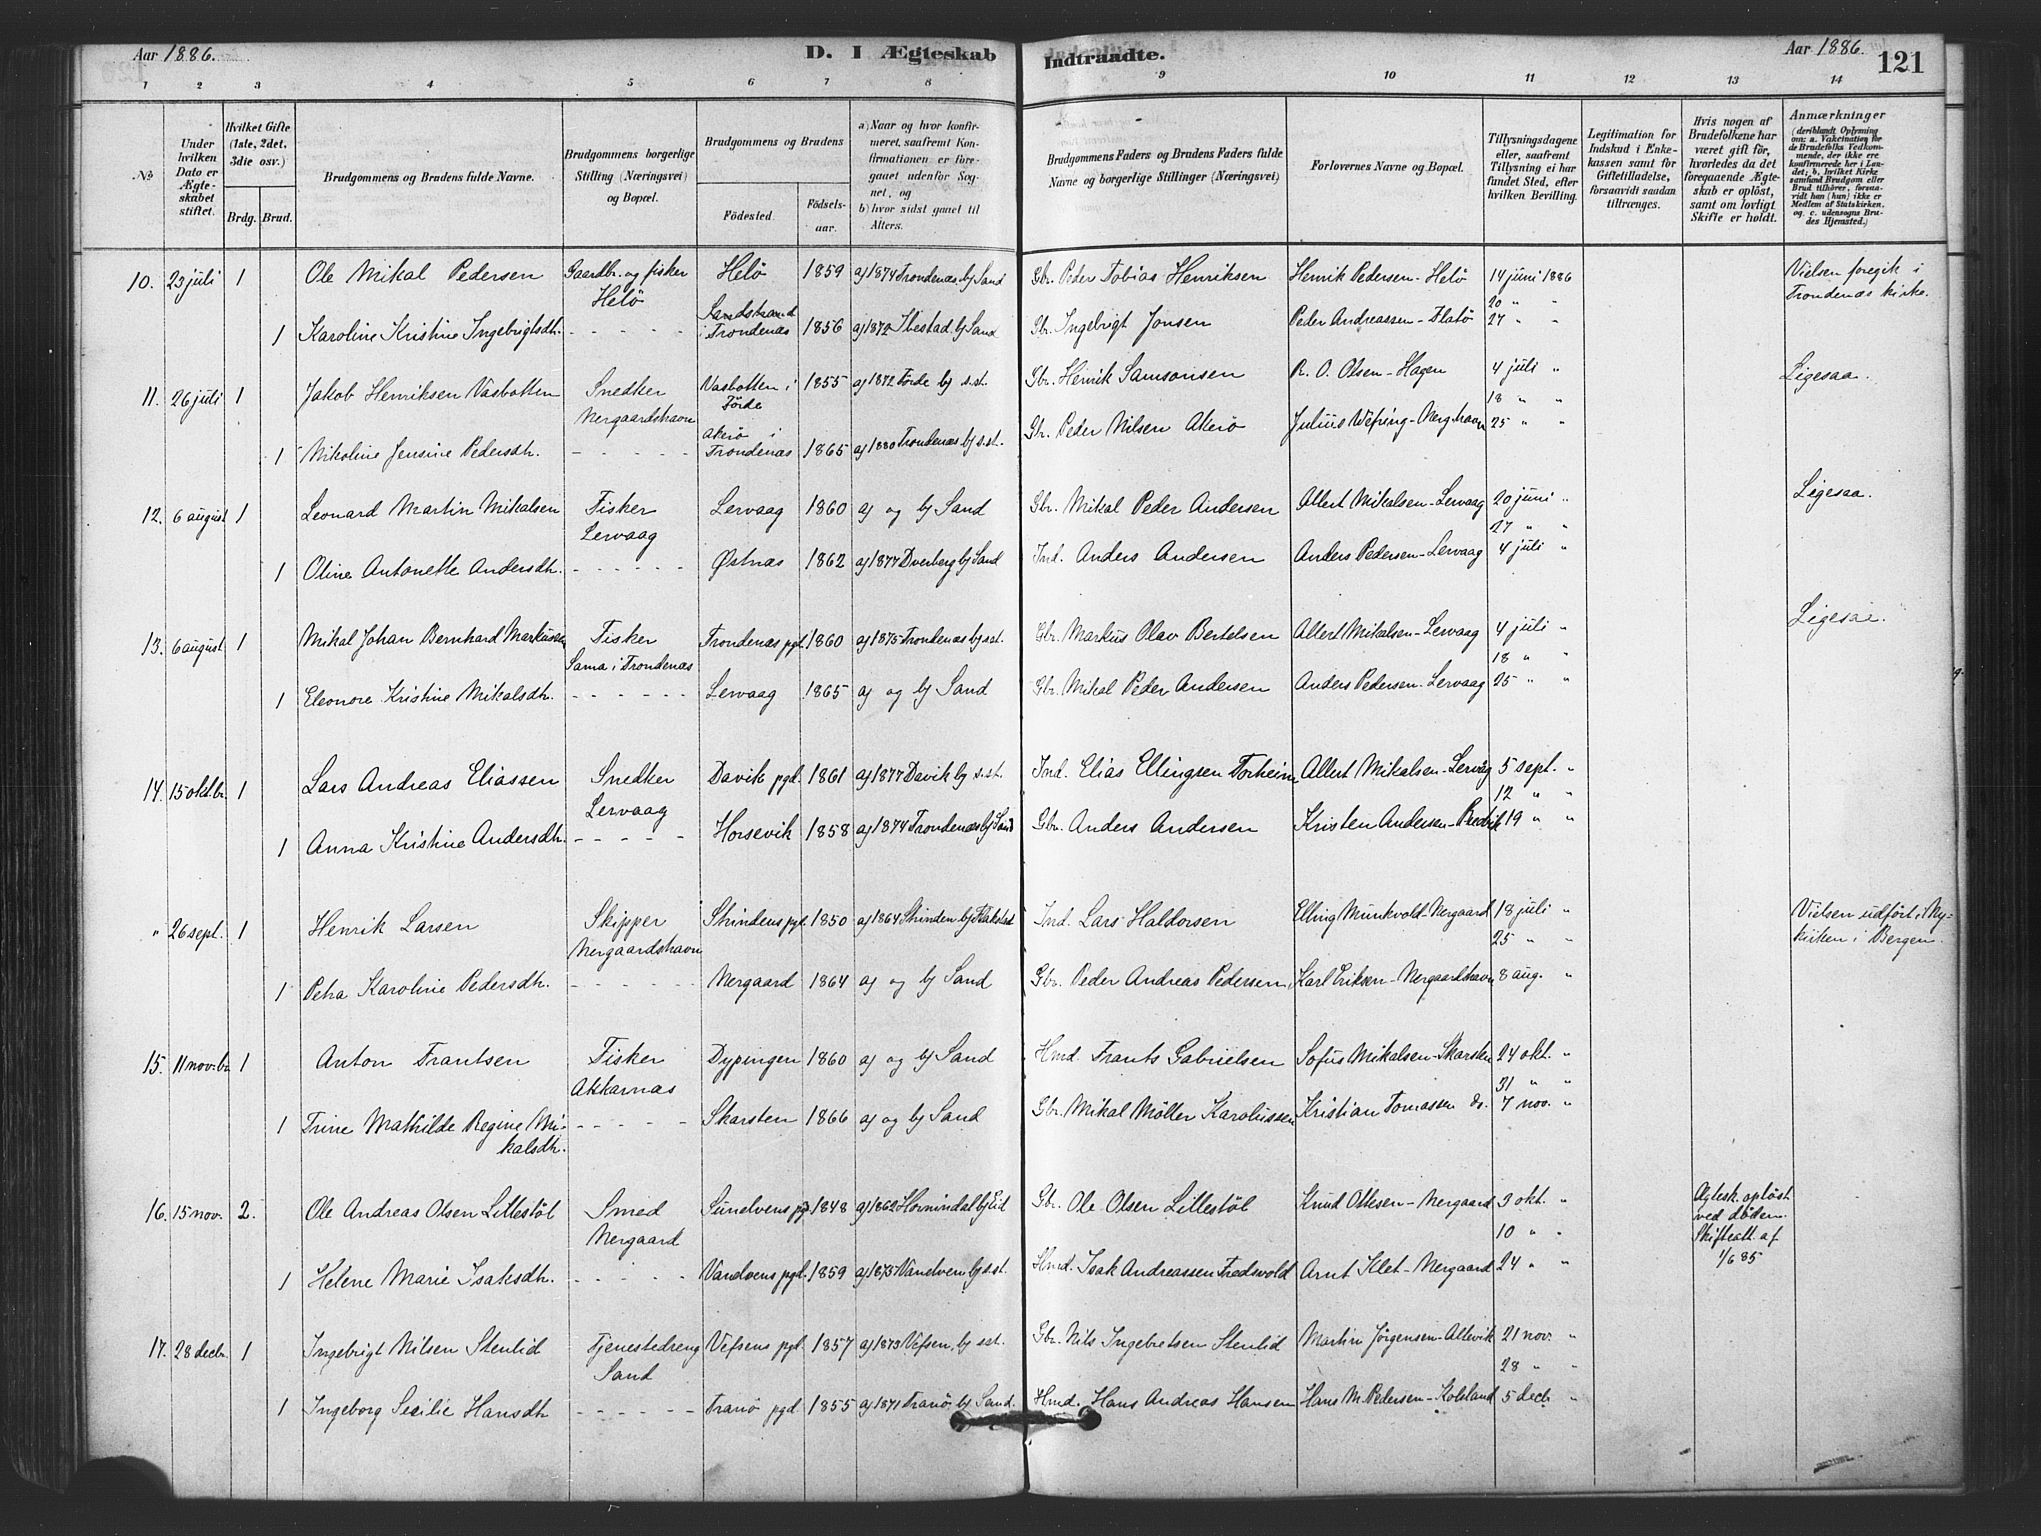 Aar 1886.
D. I Ægteskab Indtraadte.
Aar 1886.
121
1 2 3 4 5 6 7 8 9 10 11 12 13 14
No
Under hvilken Dato er Ægteskabet stiftet.
Hvilket Gifte (1ste, 2det, 3die osv.)
Brdg. Brud.
Brudgommens og Brudens fulde Navne.
Brudgommens borgerlige Stilling (Næringsvei) og Bopæl.
Brudgommens og Brudens
Födested.
Födsels-aar.
a) Naar og hvor konfirmeret, saafremt Konfirmationen er foregaaet udenfor Sognet, og
b) hvor sidst gaaet til Alters.
Brudgommens Faders og Brudens Faders fulde Navne og borgerlige Stillinger (Næringsvei)
Forlovernes Navne og Bopæl.
Tillysningsdagene eller, saafremt Tillysning ei har fundet Sted, efter hvilken Bevilling.
Legitimation for Indskud i Enkekassen samt for Giftetilladelse, forsaavidt saadan tiltrænges.
Hvis nogen af Brudefolkene har været gift før, hvorledes da det foregaaende Ægteskab er oplöst, samt om lovligt Skifte er holdt.
Anmærkninger
(deriblandt Oplysning om: a. Vakcination for de Brudefolks Vedkommende, der ikke ere konfirmerede her i Landet; b. hvilket Kirkesamfund Brudgom eller Brud tilhörer, forsaavidt han (hun) ikke er Medlem af Statskirken. og c. udensogns Brudes Hjemsted.)
10. 23 juli 1 Ole Mikal Pedersen Gaardbr. og fisker Helö Helö 1859 a) 1874 Trondenæs. b) Sand Gbr. Peder Tobias Henriksen Henrik Pedersen - Helö 14 juni 1886 Vielsen foregik i Trondenæs kirke.
20 " "
1 Karoline Kristine Ingebrigtsdh. - - - - - Sandstrand i Trondenæs 1856 a) 1872 Ibestad b) Sand Gbr. Ingebrigt Jonsen Peder Andreassen - Flatö 27 " "
11. 26 juli 1 Jakob Henriksen Vasbotten Snedker Nergaardshavn Vasbotten i Förde 1855 a) 1872 Förde b) s.st. Gbr. Henrik Samsonsen R. O. Olsen - Hagen 4 juli " Ligesaa.
18 " "
1 Nikoline Jensine Pedersdh. - - - - - Akerö i Trondenæs 1865 a) 1880 Trondenæs b) s.st. Gbr. Peder Nilsen Akerö Julius Wefring - Nerg.havn 25 " "
12. 6 august 1 Leonard Martin Mikalsen Fisker Lervaag Lervaag 1860 a) og b) Sand Gbr. Mikal Peder Andersen Albert Mikalsen - Lervaag 20 juni " Ligesaa.
27 " "
1 Oline Antonette Andersdh. - - - - - Østnæs 1862 a) 1877 Dverberg b) Sand Ind. Anders Andersen Anders Pedersen - Lervaag 4 juli "
13. 6 august 1 Mikal Johan Bernhard Markussen Fisker Sama i Trondenæs Trondenæs pgd. 1860 a) 1875 Trondenæs b) s.st. Gbr. Markus Olav Bertelsen Albert Mikalsen - Lervaag 4 juli " Ligesaa.
18 " "
1 Eleonore Kristine Mikalsdh. - - - - - Lervaag 1865 a) og b) Sand Gbr. Mikal Peder Andersen Anders Pedersen - Lervaag 25 " "
14. 15 oktbr. 1 Lars Andreas Eliassen Snedker Lervaag Davik pgd. 1861 a) 1877 Davik b) s.st. Ind. Elias Ellingsen Torheim Albert Mikalsen - Lervåg 5 sept. "
12 " "
1 Anna Kristine Andersdh. - - - - - Horsevik 1858 a) 1874 Trondenæs b) Sand Gbr. Anders Andersen Kristen Andersen - 19 " "
" 26 sept. 1 Henrik Larsen Skipper Nergaardshavn Strindens pgd. 1850 a) 1864 Strinden b) Ind. Lars Haldorsen Elling Munkvold - Nergaard 18 juli " Vielsen udført i Nykirken i Bergen.
25 " "
1 Petra Karoline Pedersdh. - - - - - Nergaard 1864 a) og b) Sand Gbr. Peder Andreas Pedersen Karl Eriksen - Nergaardhavn 8 aug. "
15. 11 novbr. 1 Anton Frantsen Fisker Akkarnæs Dypingen 1860 a) og b) Sand Hmd. Frants Gabrielsen Sofus Mikalsen - Skarsten 24 okt. "
31 " "
1 Trine Mathilde Regine Mikalsdh. - - - - - Skarsten 1866 a) og b) Sand Gbr. Mikal Möller Karolussen Kristian Tomassen do. 7 nov. "
16. 15 nov. 2. Ole Andreas Olsen Lillestöl Smed Nergaard Sundvens pgd 1848 a) 1862 Hornindal b) Eid Gbr. Ole Olsen Lillestöl Knud Ottesen - Nergaard 3 okt. " Ægtesk. oplöst ved döden. Skifteatt af 1/6 85
10 " "
1 Helene Marie Isaksdh. - - - - - Vandvens pgd. 1859 a) 1875 Vandven b) s.st. Hmd. Isak Andreassen Fredsvold Arnt Illet - Nergaard 24 " "
17. 28 decbr. 1 Ingebrigt Nilsen Stenlid Tjenestedreng Sand Vefsens pgd. 1857 a) 1873 Vefsen, b) s.st. Gbr. Nils Ingebretsen Stenlid Martin Jörgensen - Altevik 21 nov. "
28 " "
1 Ingeborg Sicilie Hansdh - - - - - Tranö pgd 1855 a) 1871 Tranö, b) Sand. Hmd. Hans Andreas Hansen Hans M. Pedersen - Kobland 5 decb "